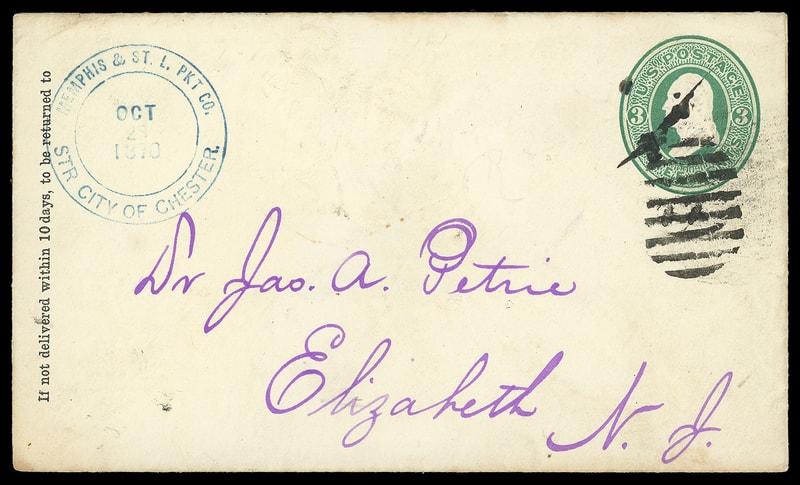 MEMPHIS & ST. L. PKT CO.
OCT
STR CITY OF CHESTER.
If not delivered within 10 days, to be returned to
U.S. POSTAGE
3 3
Dr Jas. A. Petrie
Elizabeth N. J.